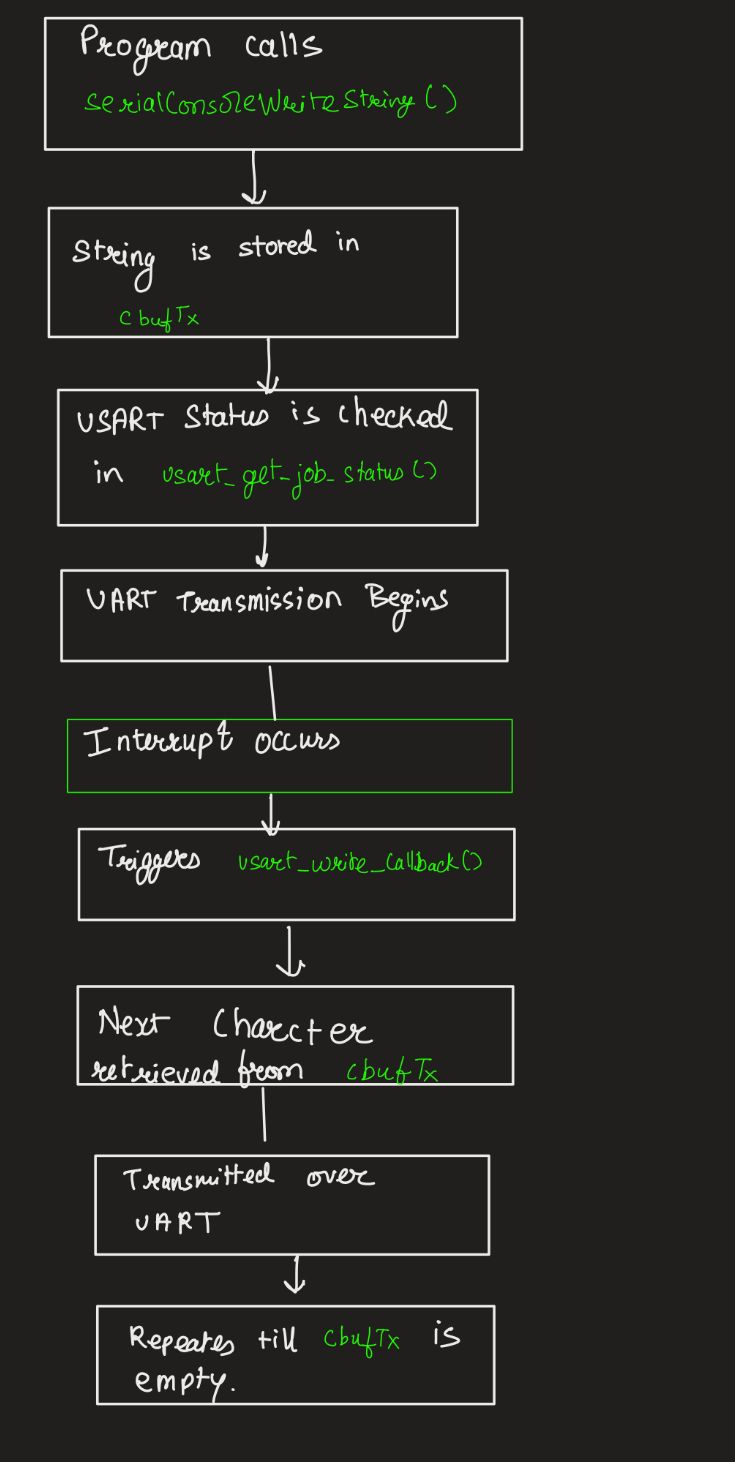 Program calls
serialConsoleWriteString()
String is stored in
cbufTx
USART Status is checked
in usart_get_job_status()
UART Transmission Begins
Interrupt occurs
Triggers usart_write_callback()
Next Charcter
retrieved from cbufTx
Transmitted over
UART
Repeates till cbufTx is
empty.